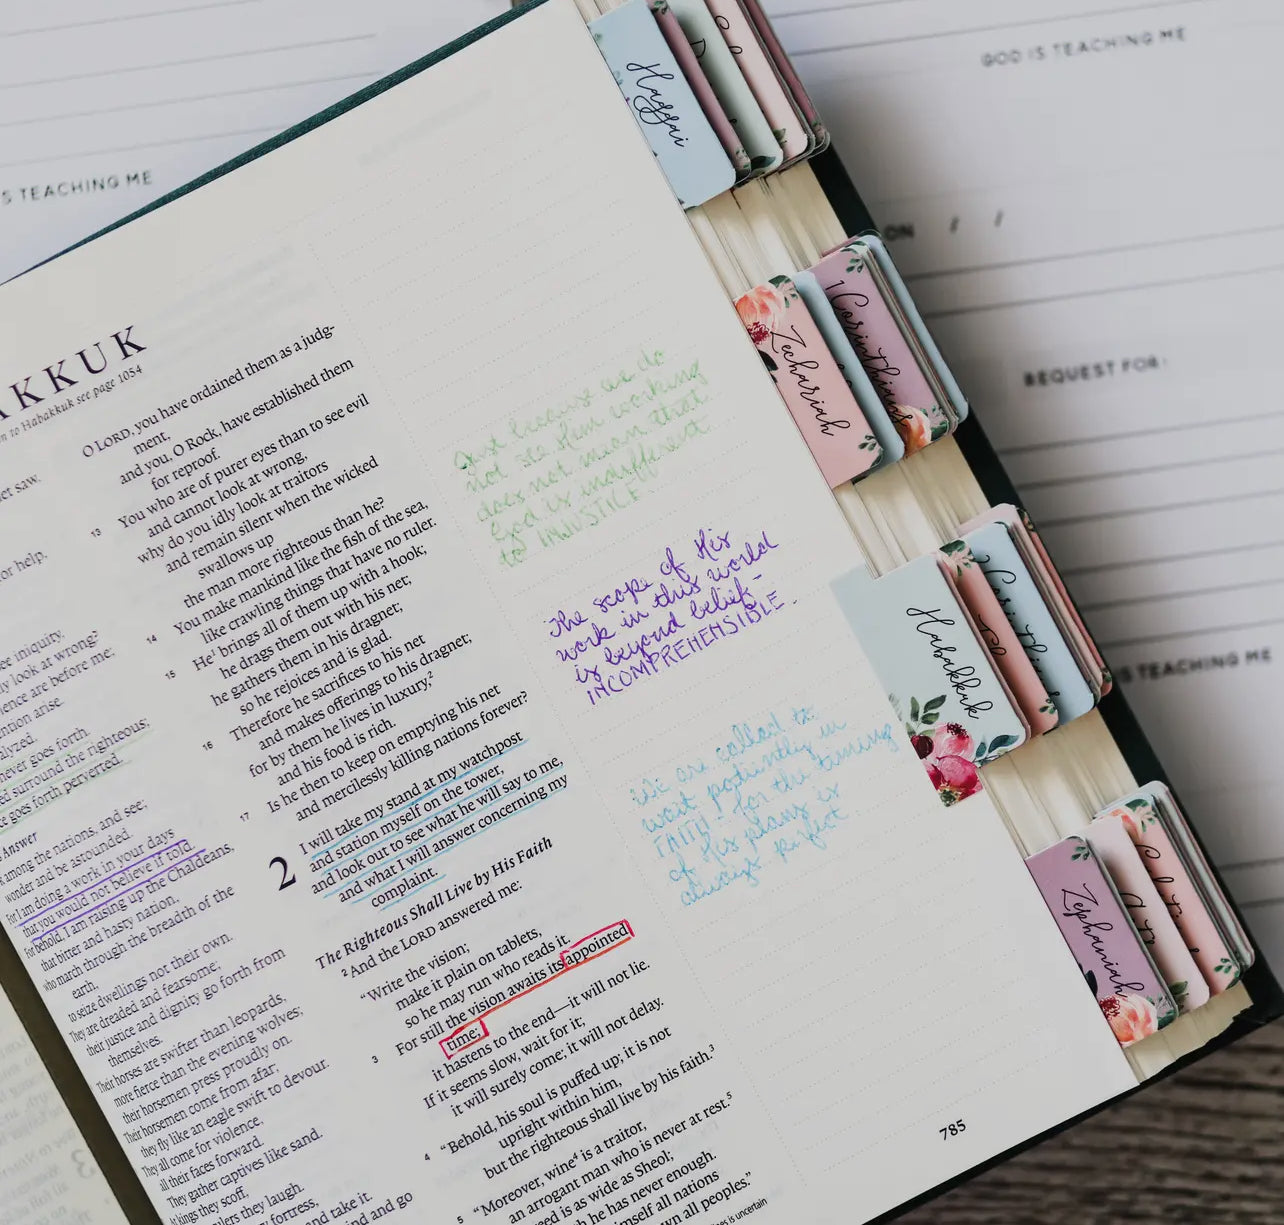 S TEACHING ME
GOD IS TEACHING ME
ON / /
REQUEST FOR:
S TEACHING ME
Haggai
Zechariah
1 Corinthians
Habakkuk
Zephaniah
AKKUK
n to Habakkuk see page 1054
et saw.
or help,
ee iniquity,
ly look at wrong?
ence are before me;
ntion arise.
alyzed,
never goes forth.
ed surround the righteous;
e goes forth perverted.
Answer
among the nations, and see;
wonder and be astounded.
for I am doing a work in your days
that you would not believe if told.
for behold, I am raising up the Chaldeans,
that bitter and hasty nation,
who march through the breadth of the
earth,
to seize dwellings not their own.
They are dreaded and fearsome;
their justice and dignity go forth from
themselves.
Their horses are swifter than leopards,
more fierce than the evening wolves;
their horsemen press proudly on.
Their horsemen come from afar;
they fly like an eagle swift to devour.
They all come for violence,
all their faces forward.
They gather captives like sand.
kings they scoff,
rulers they laugh.
fortress,
and take it.
ind and go
O LORD, you have ordained them as a judg-
ment,
and you, O Rock, have established them
for reproof.
13 You who are of purer eyes than to see evil
and cannot look at wrong,
why do you idly look at traitors
and remain silent when the wicked
swallows up
the man more righteous than he?
14 You make mankind like the fish of the sea,
like crawling things that have no ruler.
15 He¹ brings all of them up with a hook;
he drags them out with his net;
he gathers them in his dragnet;
so he rejoices and is glad.
16 Therefore he sacrifices to his net
and makes offerings to his dragnet;
for by them he lives in luxury,²
and his food is rich.
17 Is he then to keep on emptying his net
and mercilessly killing nations forever?
2 I will take my stand at my watchpost
and station myself on the tower,
and look out to see what he will say to me,
and what I will answer concerning my
complaint.
The Righteous Shall Live by His Faith
² And the LORD answered me:
"Write the vision;
make it plain on tablets,
so he may run who reads it.
3 For still the vision awaits its appointed
time;
it hastens to the end—it will not lie.
If it seems slow, wait for it;
it will surely come; it will not delay.
4 "Behold, his soul is puffed up; it is not
upright within him,
but the righteous shall live by his faith.³
5 "Moreover, wine⁴ is a traitor,
an arrogant man who is never at rest.⁵
eed is as wide as Sheol;
h he has never enough.
imself all nations
wn all peoples."
es is uncertain
Just because we do
not see Him working
does not mean that
God is indifferent
to INJUSTICE.
The scope of His
work in this world
is beyond belief-
INCOMPREHENSIBLE.
We are called to
wait patiently in
FAITH for the timing
of His plans is
always perfect.
785